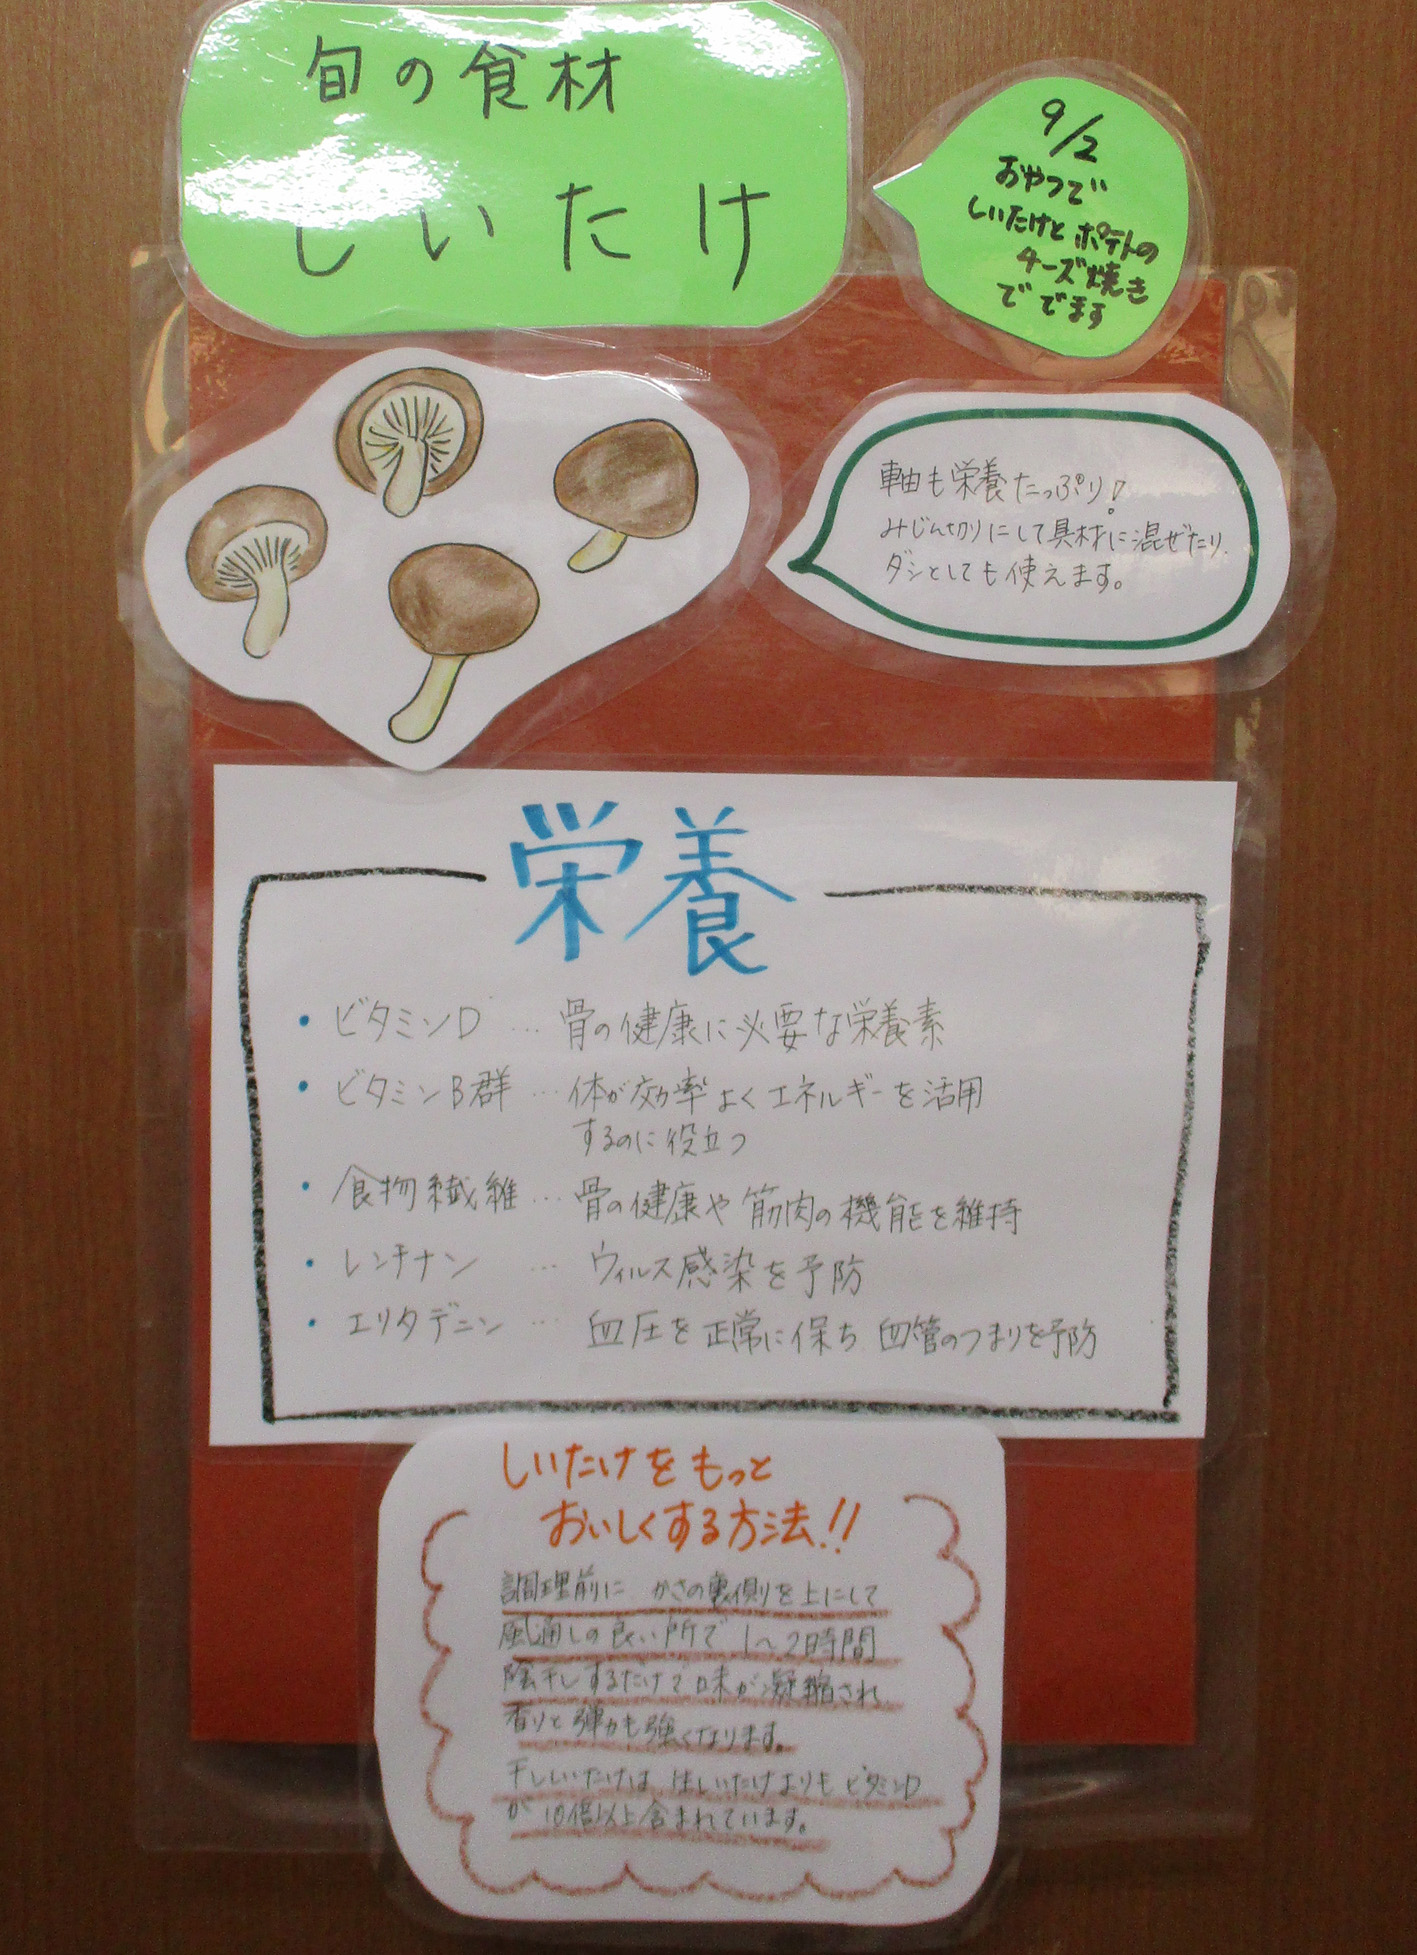 旬の食材
しいたけ
9/2
おやつで
しいたけとポテトの
チーズ焼き
ででます
軸も栄養たっぷり!
みじん切りにして具材に混ぜたり、
ダシとしても使えます。
栄養
・ビタミンD … 骨の健康に必要な栄養素
・ビタミンB群 … 体が効率よくエネルギーを活用
するのに役立つ
・食物繊維 … 骨の健康や筋肉の機能を維持
・レンチナン … ウィルス感染を予防
・エリタデニン … 血圧を正常に保ち 血管のつまりを予防
しいたけをもっと
おいしくする方法!!
調理前に かさの裏側を上にして
風通しの良い所で 1〜2時間
陰干しするだけで味が凝縮され
香りと弾力も強くなります。
干ししいたけは 生しいたけよりも ビタミンD
が 10倍以上含まれています。